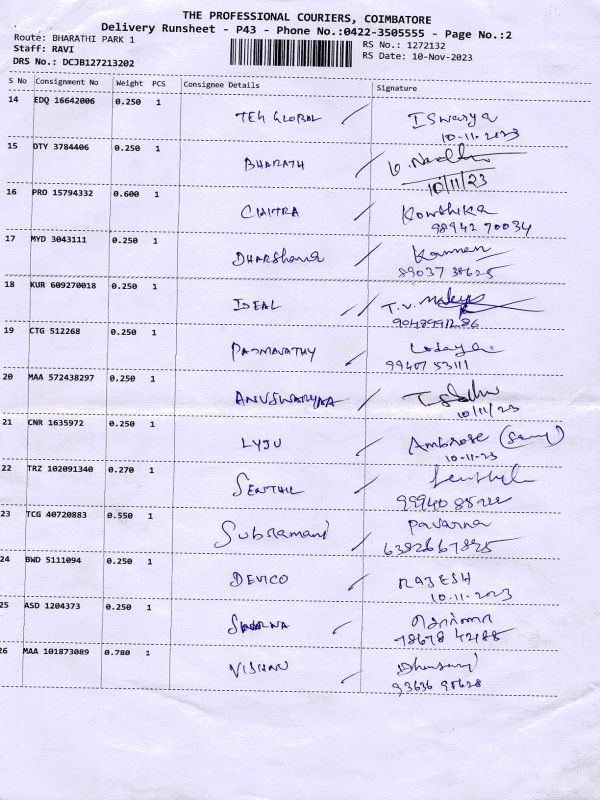 THE PROFESSIONAL COURIERS, COIMBATORE
Delivery Runsheet - P43 - Phone No.:0422-3505555 - Page No.:2
Route: BHARATHI PARK 1
Staff: RAVI
DRS No.: DCJB127213202
RS No.: 1272132
RS Date: 10-Nov-2023
S No Consignment No Weight PCS Consignee Details Signature
14 EDQ 16642006 0.250 1
TEK GLOBAL Iswarya
10-11-2023
15 OTY 3784406 0.250 1
BHARATH
10/11/23
16 PRO 15794332 0.600 1
CHITRA Kowshika
98942 70034
17 MYD 3043111 0.250 1
DHARshana Kannan
89037 38625
18 KUR 609270018 0.250 1
IDEAL T.V.
19 CTG 512268 0.250 1
PADMAVATHY
99407 53111
20 MAA 572438297 0.250 1
ANUSWARYAA
10/11/23
21 CNR 1635972 0.250 1
LYJU Ambrose
10-11-23
22 TRZ 102091340 0.270 1
SENTHIL
23 TCG 40720883 0.550 1
Subramani Pavarna
24 BWD 5111094 0.250 1
DEVICO RAJESH
10-11-2023
25 ASD 1204373 0.250 1
26 MAA 101873089 0.780 1
VISHNU